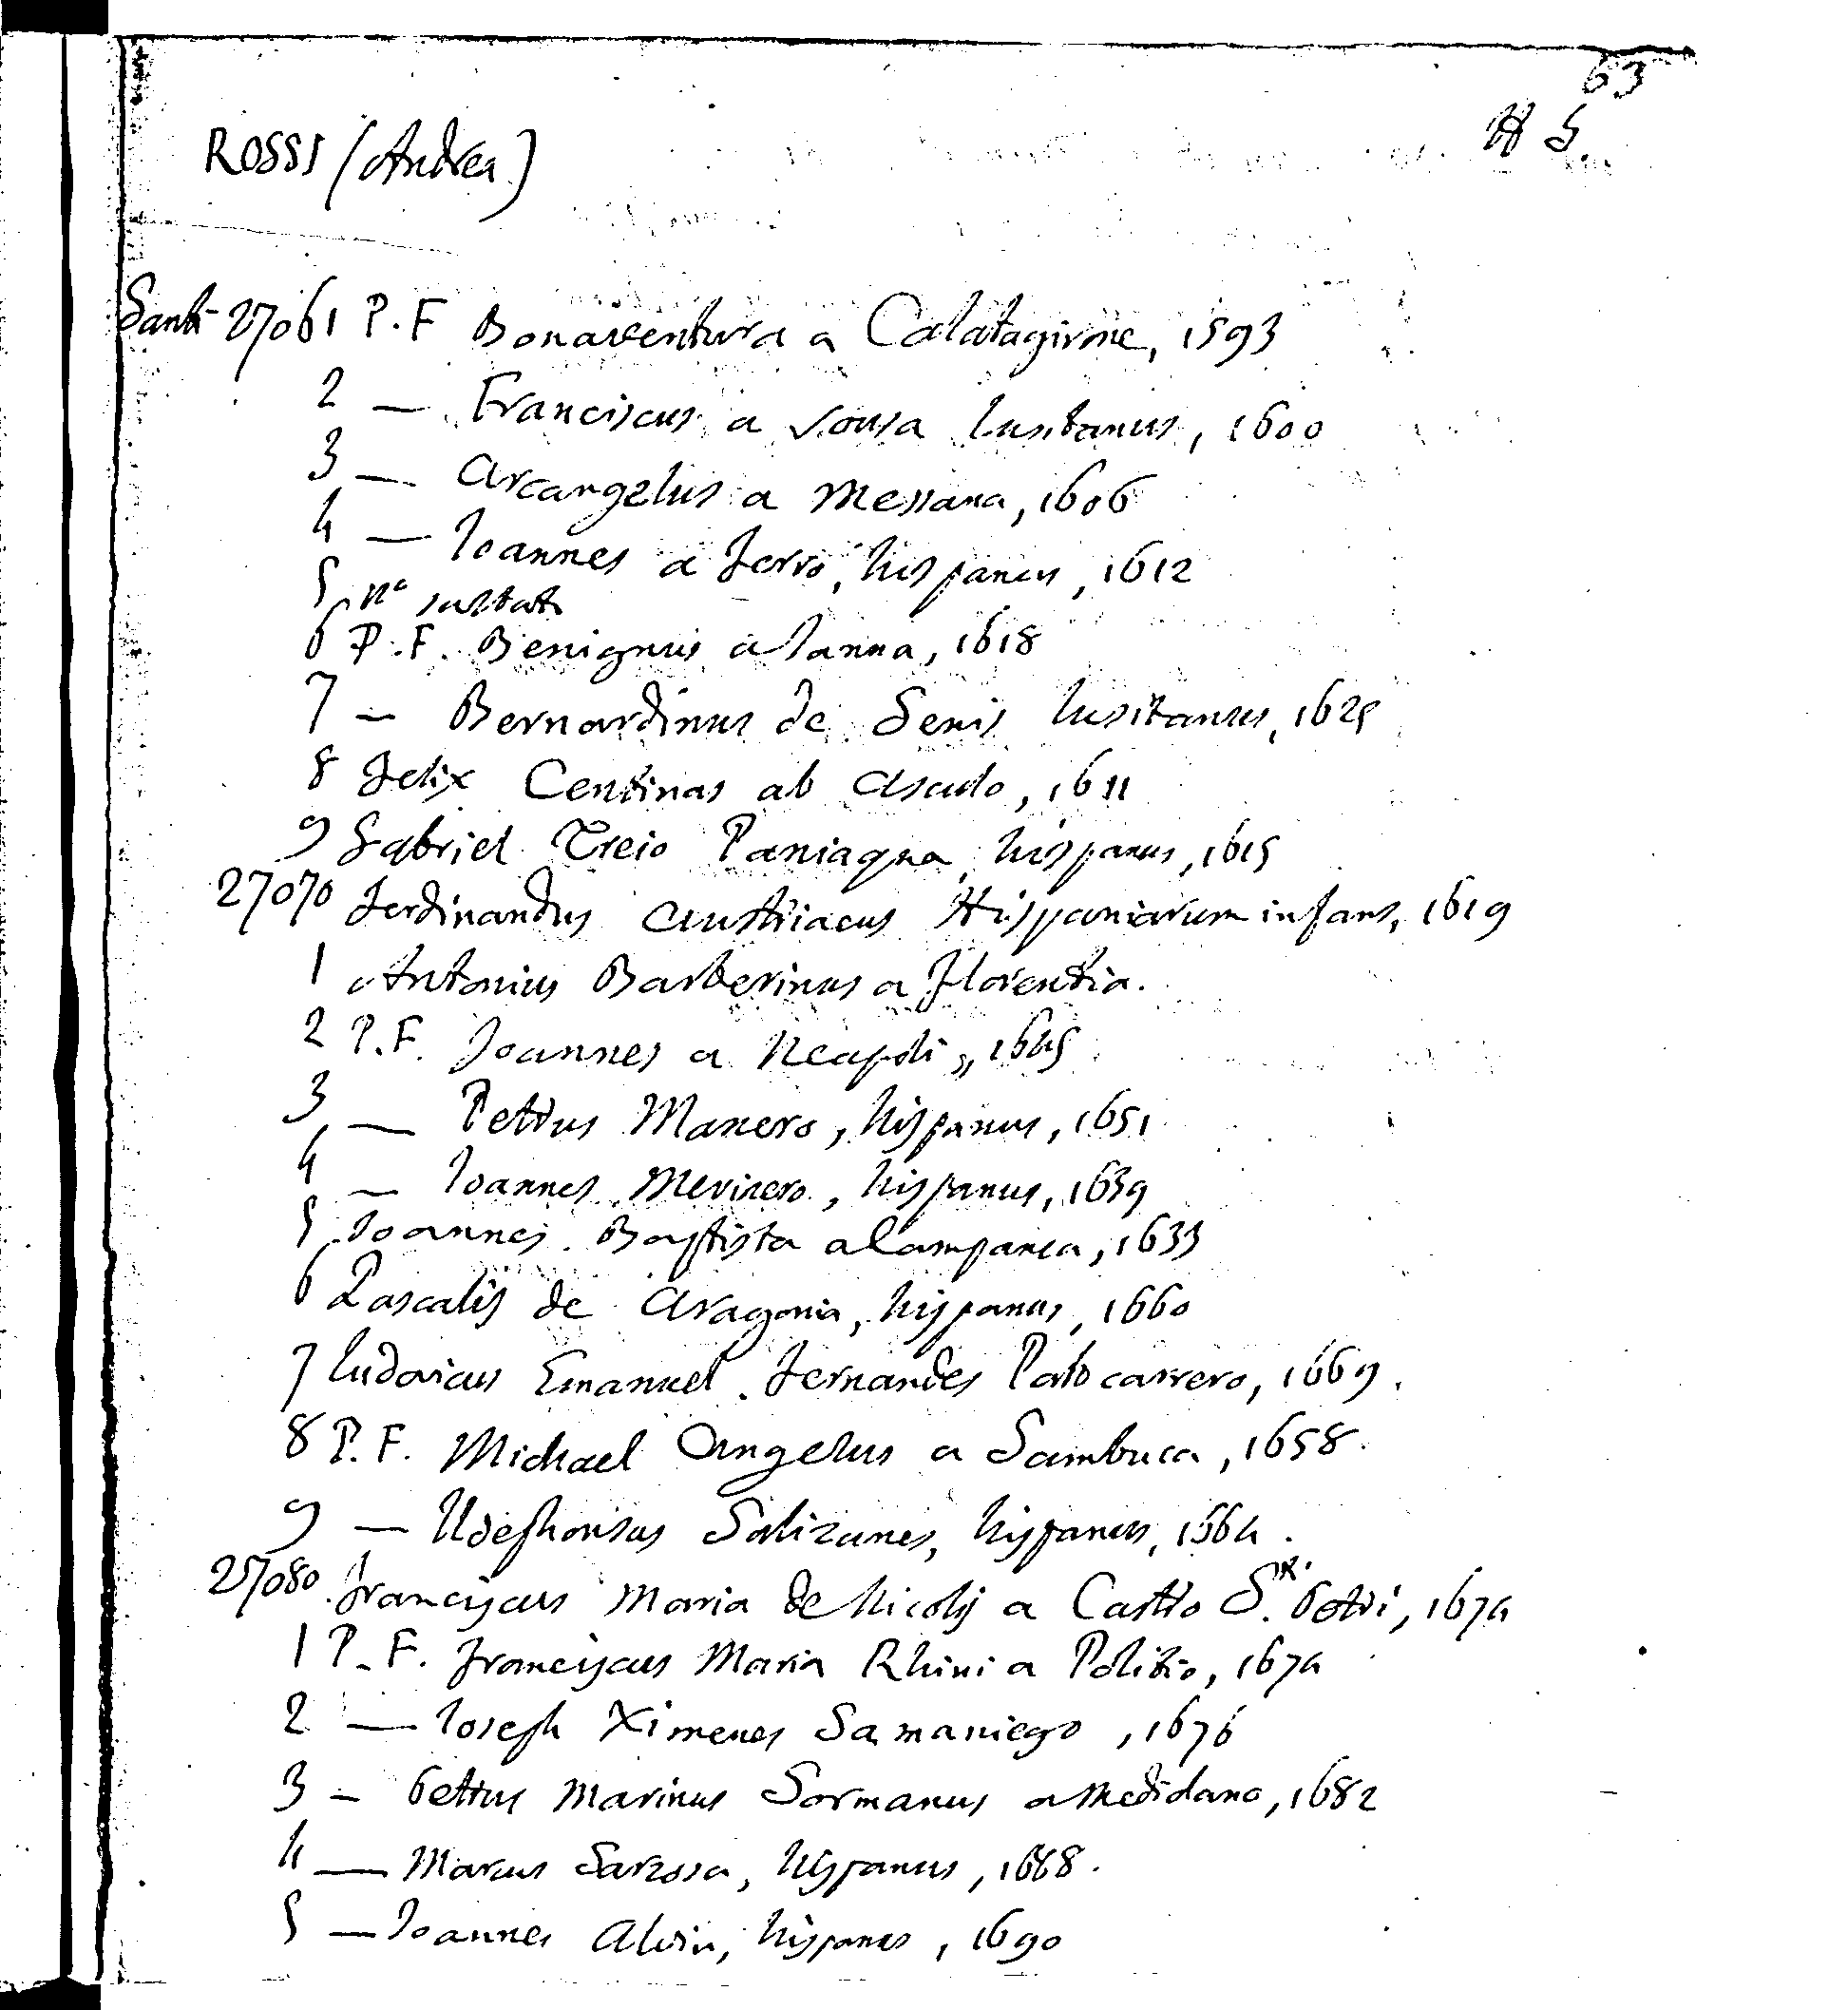 63
H 5
ROSSI (Andrea)
Sant- 27061 P.F Bonaventura a Calatagirone, 1593
2 — Franciscus a Sousa lusitanus, 1600
3 — Arcangelus a Messana, 1606
4 — Ioannes a Ferro, hispanus, 1612
5 n°
6 P.F. Benignus a Ianna, 1618
7 — Bernardinus de Senis lusitanus, 1625
8 Felix Centinas ab Asculo, 1611
9 Gabriel Treio Paniaqua, hispanus, 1615
27070 Ferdinandus Austriacus Hispaniarum infans, 1619
1 Antonius Barberinus a Florentia.
2 P.F. Joannes a Neapoli, 1645
3 — Petrus Manero, hispanus, 1651
4 — Ioannes Merinero, hispanus, 1639
5 Ioannes Baptista a Campanea, 1633
6 Pascalis de Aragonia, hispanus, 1660
7 Ludovicus Emanuel Fernandes Patocarrero, 1669.
8 P.F. Michael Angelus a Sambuca, 1658.
9 — Ildefhonsus Salizanes, hispanus, 1664.
27080 Franciscus Maria de Nicolij a Castro S.ti Petri, 1674
1 P.F. Franciscus Maria Rhini a Politio, 1674
2 — Ioseph Ximenes Samaniego, 1676
3 — Petrus Marinus Sormanus a Mediolano, 1682
4 — Marcus Sarzosa, hispanus, 1688.
5 — Ioannes Alvin, hispanus, 1690